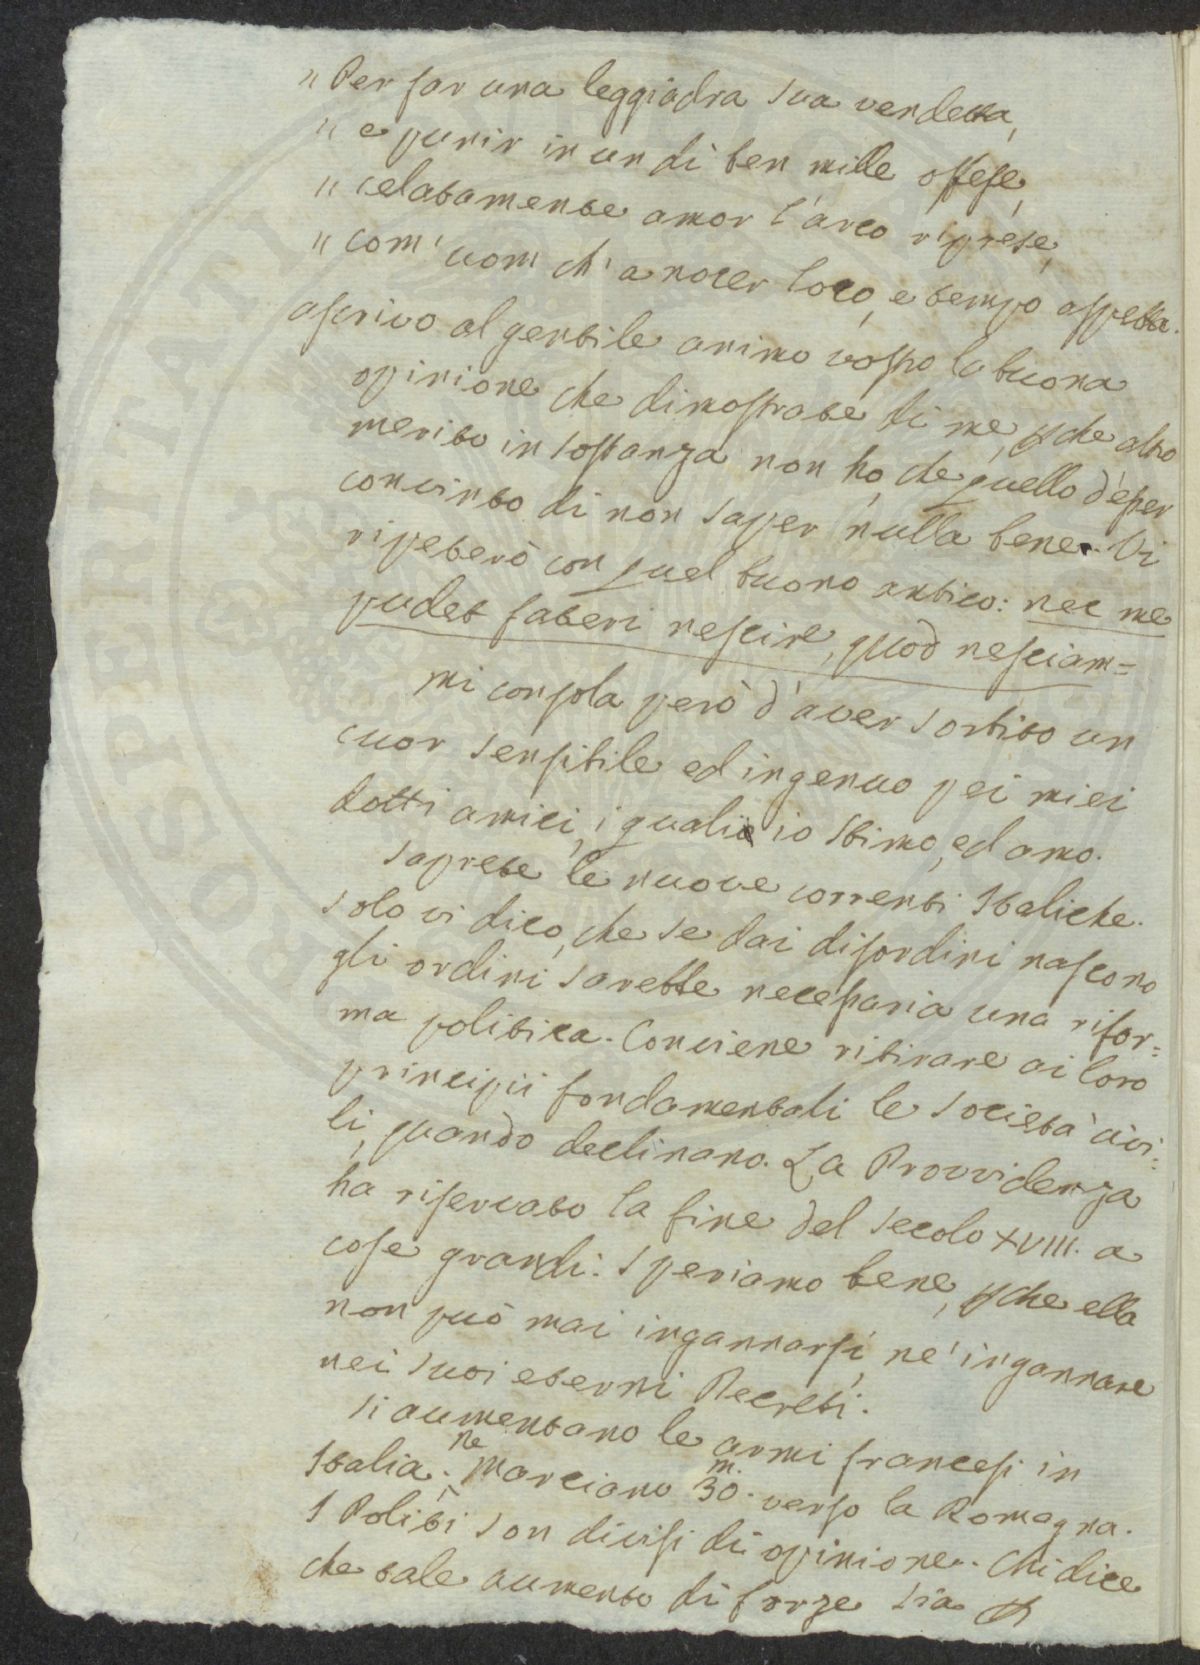 " Per far una leggiadra sua vendetta,
" e punir in un dì ben mille offese,
" celatamente amor l'arco riprese,
" com' uom ch' a nocer loco, e tempo aspetta.
ascrivo al gentile animo vostro la buona
opinione che dimostrate di me, pche altro
merito in sostanza non ho, che quello d'esser
convinto di non saper nulla bene. Vi
ripeterò con quel buono antico: nec me
pudet fateri nescire, quod nesciam=
mi consola però d'aver sortito un
cuor sensibile ed ingenuo pei miei
dotti amici, i quali io stimo, ed amo.
Saprete le nuove correnti Italiche.
Solo vi dico, che se dai disordini nascono
gli ordini sarebbe necessaria una rifor=
ma politica. Conviene ritirare ai loro
principii fondamentali le società civi=
li, quando declinano. La Provvidenza
ha riservato la fine del secolo XVIII. a
cose grandi. Speriamo bene, pche ella
non può mai ingannarsi, nè ingannare
nei suoi eterni Decreti.
Si aumentano le armi francesi in
Italia. ne Marciano 30. m. verso la Romagna.
I Politi son divisi di opinione. Chi dice
che tale aumento di forze sia p